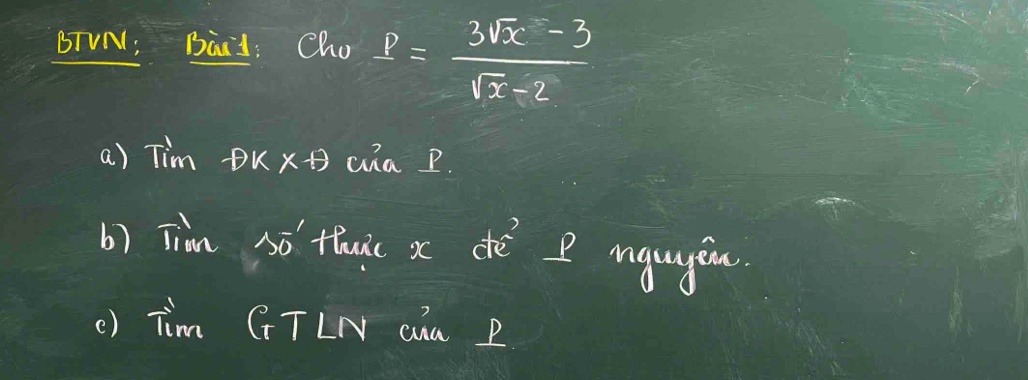 BTVN: Bài 1: Cho P = (3√x - 3)/(√x - 2)
a) Tìm ĐKXĐ của P.
b) Tìm số thực x để P nguyên.
c) Tìm GTLN của P